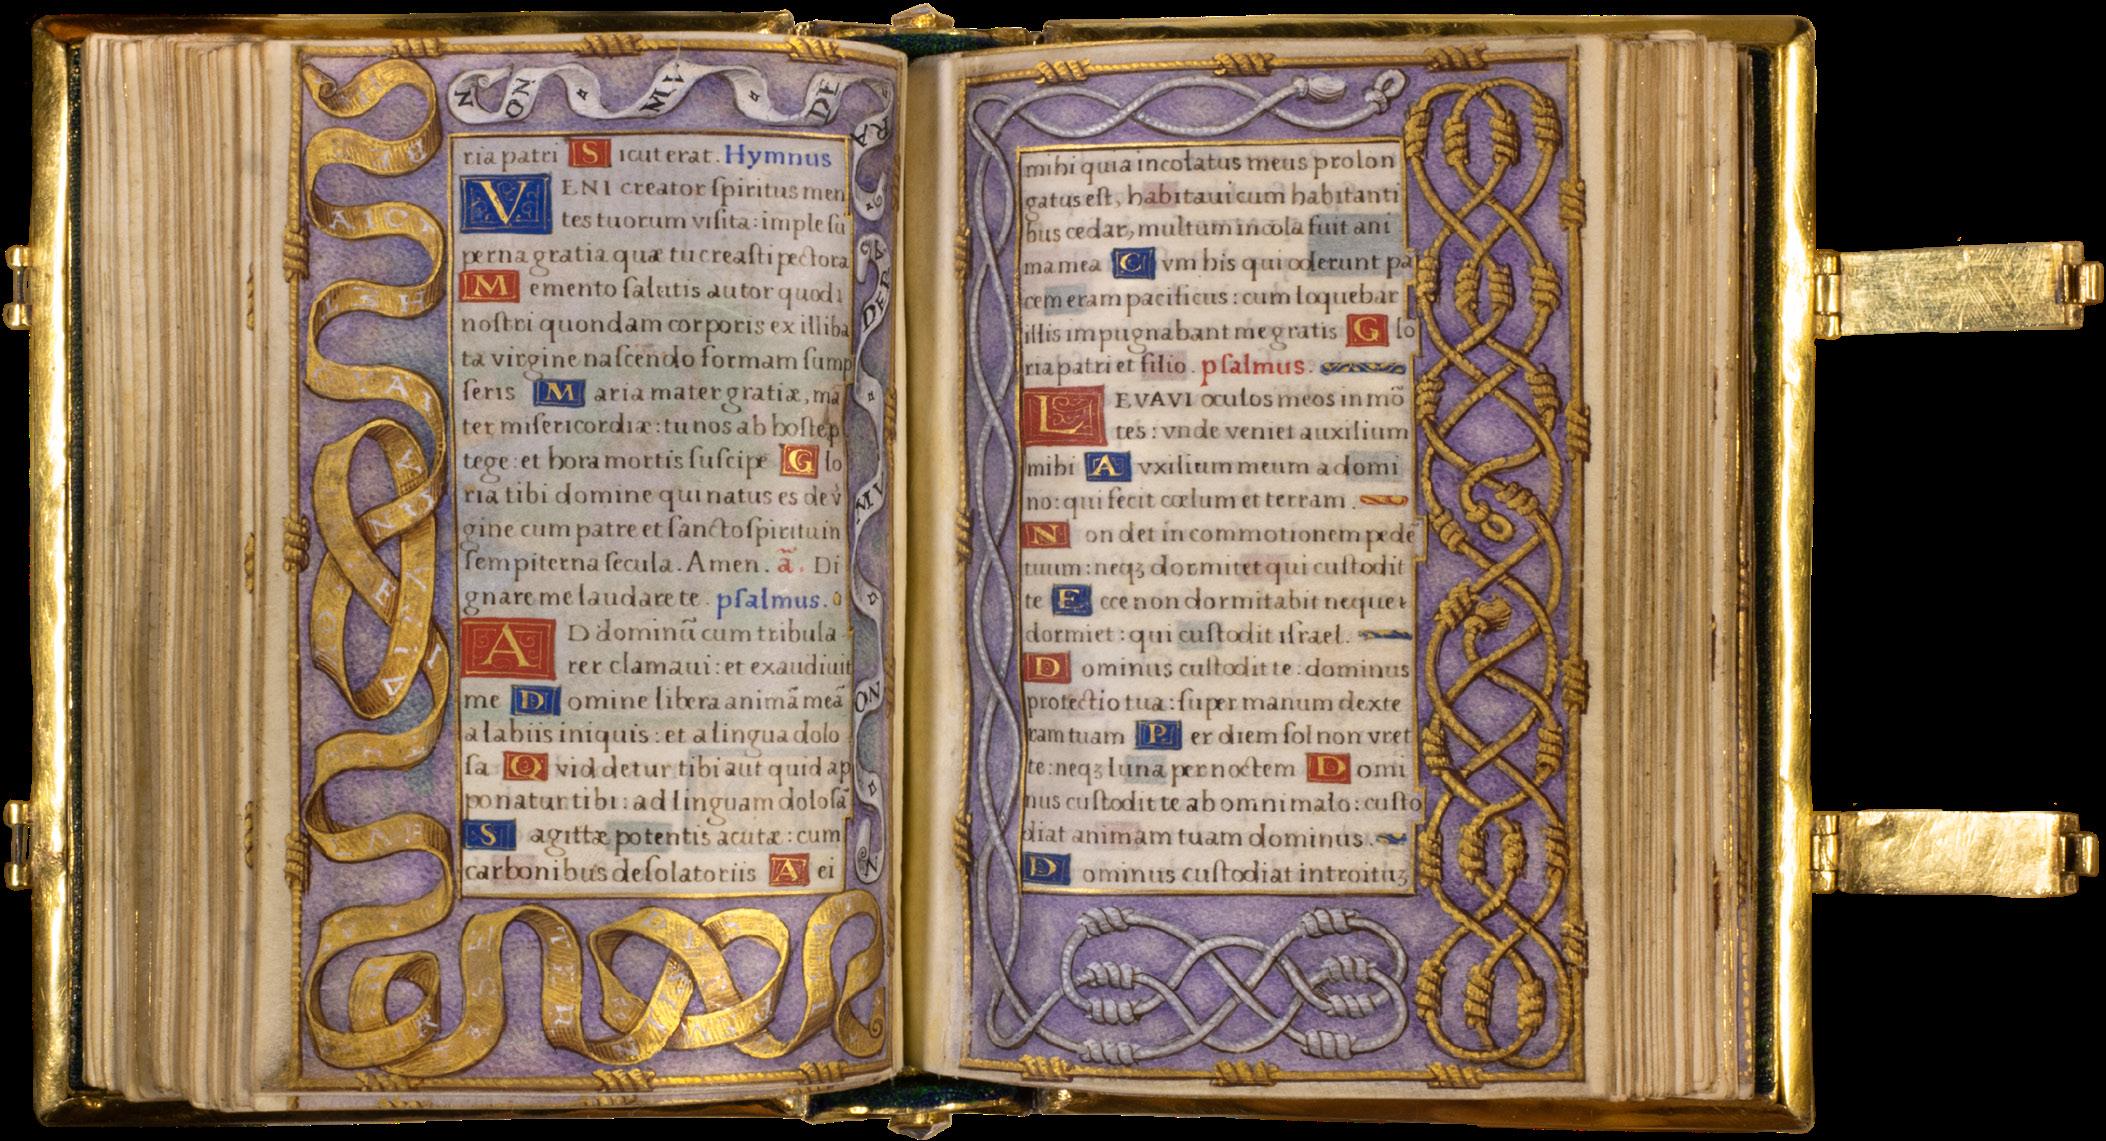 NON MV DERA
ria patri S icut erat. Hymnus
VENI creator ſpiritus men
tes tuorum viſita: imple ſu
perna gratia quæ tu creaſti pectora
M emento ſalutis autor quod
noſtri quondam corporis ex illiba
ta virgine naſcendo formam ſump
ſeris M aria mater gratiæ, ma
ter miſericordiæ: tu nos ab hoſte p
tege: et hora mortis ſuſcipe G lo
ria tibi domine qui natus es de v
gine cum patre et ſancto ſpiritu in
ſempiterna ſecula. Amen. ā. Di
gnare me laudare te. pſalmus.
AD dominū cum tribula
rer clamaui: et exaudiuit
me D omine libera animā meā
a labiis iniquis: et a lingua dolo
ſa Q vid detur tibi aut quid ap
ponatur tibi: ad linguam doloſā
S agittæ potentis acutæ: cum
carbonibus deſolatoriis A ei
mihi quia incolatus meus prolon
gatus eſt, habitaui cum habitanti
bus cedar, multum incola fuit ani
ma mea C vm his qui oderunt pa
cem eram pacificus: cum loquebar
illis impugnabant me gratis G lo
ria patri et filio. pſalmus.
LEVAVI oculos meos in mō
tes: vnde veniet auxilium
mihi A vxilium meum a domi
no: qui fecit cœlum et terram.
N on det in commotionem pedē
tuum: neqꝫ dormitet qui cuſtodit
te E cce non dormitabit neque
dormiet: qui cuſtodit iſrael.
D ominus cuſtodit te: dominus
protectio tua: ſuper manum dexte
ram tuam P er diem ſol non vret
te: neqꝫ luna per noctem D omi
nus cuſtodit te ab omni malo: cuſto
diat animam tuam dominus.
D ominus cuſtodiat introituꝫ